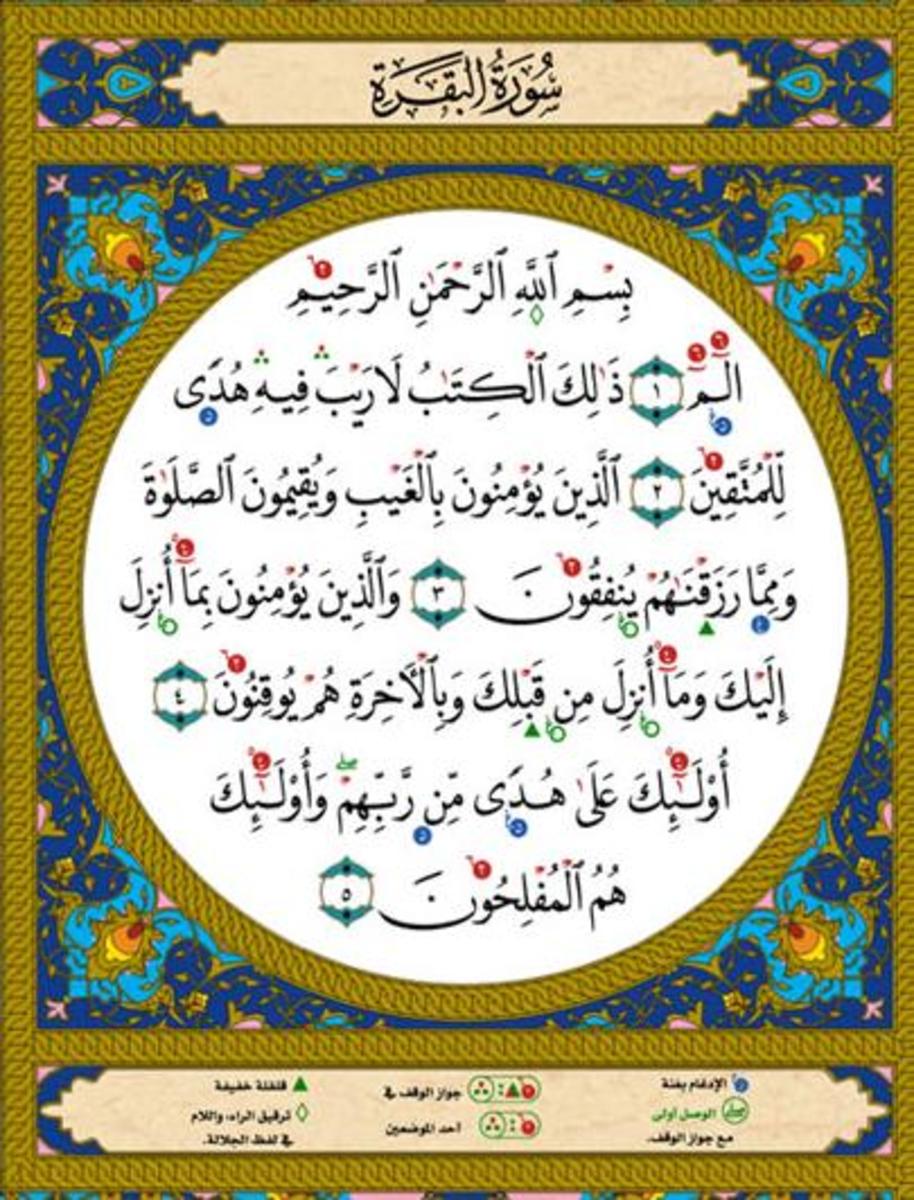 سُورَةُ الْبَقَرَةِ
بِسْمِ ٱللَّهِ ٱلرَّحْمَٰنِ ٱلرَّحِيمِ
الٓمٓ ١ ذَٰلِكَ ٱلْكِتَٰبُ لَا رَيْبَ ۛ فِيهِ ۛ هُدًى
لِّلْمُتَّقِينَ ٢ ٱلَّذِينَ يُؤْمِنُونَ بِٱلْغَيْبِ وَيُقِيمُونَ ٱلصَّلَوٰةَ
وَمِمَّا رَزَقْنَٰهُمْ يُنفِقُونَ ٣ وَٱلَّذِينَ يُؤْمِنُونَ بِمَآ أُنزِلَ
إِلَيْكَ وَمَآ أُنزِلَ مِن قَبْلِكَ وَبِٱلْأَخِرَةِ هُمْ يُوقِنُونَ ٤
أُوْلَٰٓئِكَ عَلَىٰ هُدًى مِّن رَّبِّهِمْ ۖ وَأُوْلَٰٓئِكَ
هُمُ ٱلْمُفْلِحُونَ ٥
الإدغام بغنة
الوصل أولى
مع جواز الوقف.
جواز الوقف في
أحد الموضعين
قلقلة خفيفة
ترقيق الراء، واللام
في لفظ الجلالة.